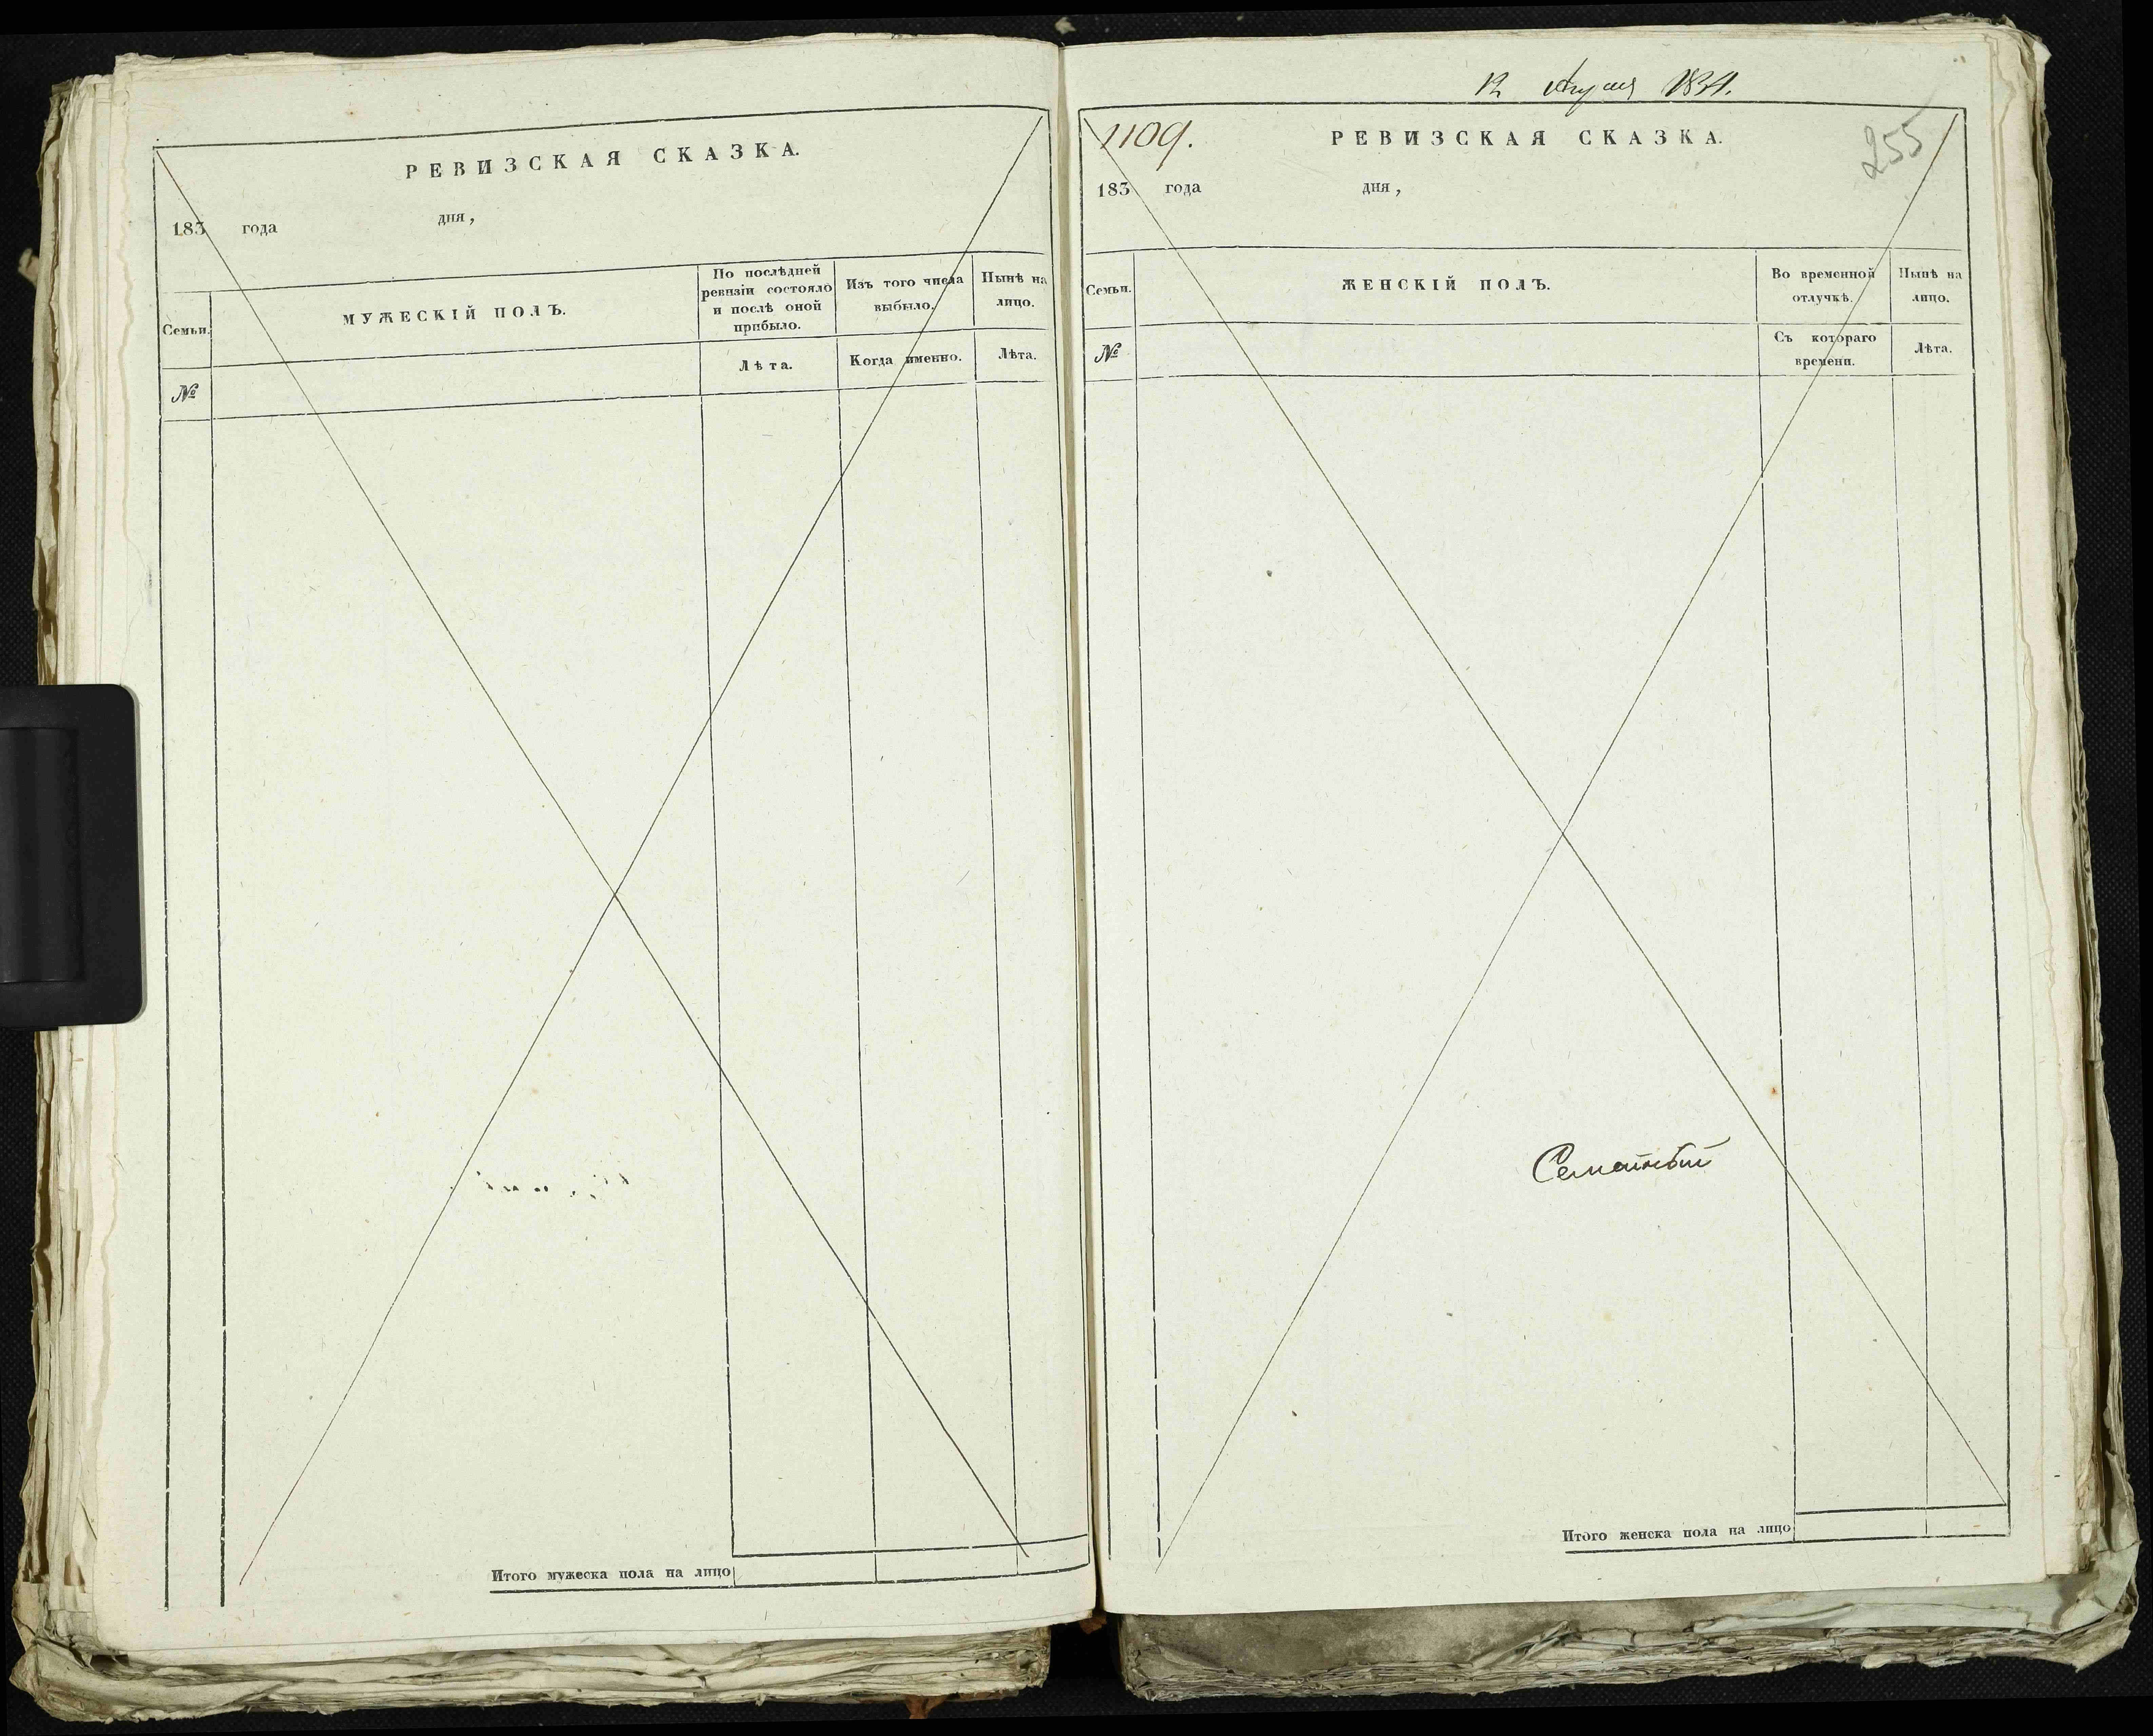 РЕВИЗСКАЯ СКАЗКА.
183 года дня,
Семьи.
МУЖЕСКІЙ ПОЛЪ.
По послѣдней
ревизіи состояло
и послѣ оной
прибыло.
Изъ того числа
выбыло.
Нынѣ на
лицо.
№
Лѣта.
Когда именно.
Лѣта.
Итого мужеска пола на лицо
12 1834.
1109.
РЕВИЗСКАЯ СКАЗКА.
255
183 года дня,
Семьи.
ЖЕНСКІЙ ПОЛЪ.
Во временной
отлучкѣ.
Нынѣ на
лицо.
№
Съ котораго
времени.
Лѣта.
Семейный
Итого женска пола на лицо